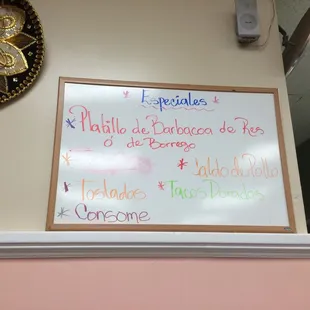 * Especiales *
* Platillo de Barbacoa de Res
ó de Borrego
* Caldo de Pollo
* Tostadas * Tacos Dorados
* Consome